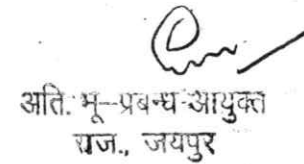 अति. भू-प्रबन्ध-आयुक्त
राज., जयपुर